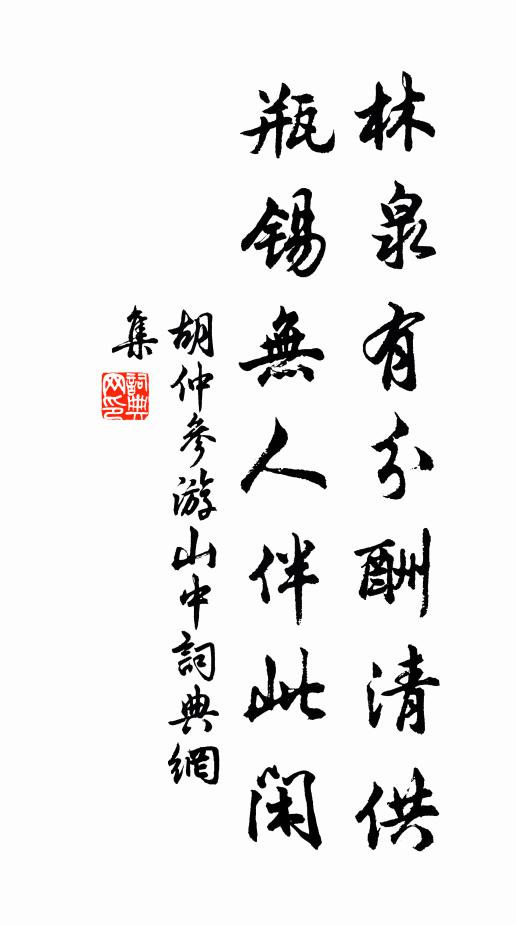 林泉有分酬清供
瓶錫無人伴此閑
胡仲參游山中詞典網
集
詞典
网印